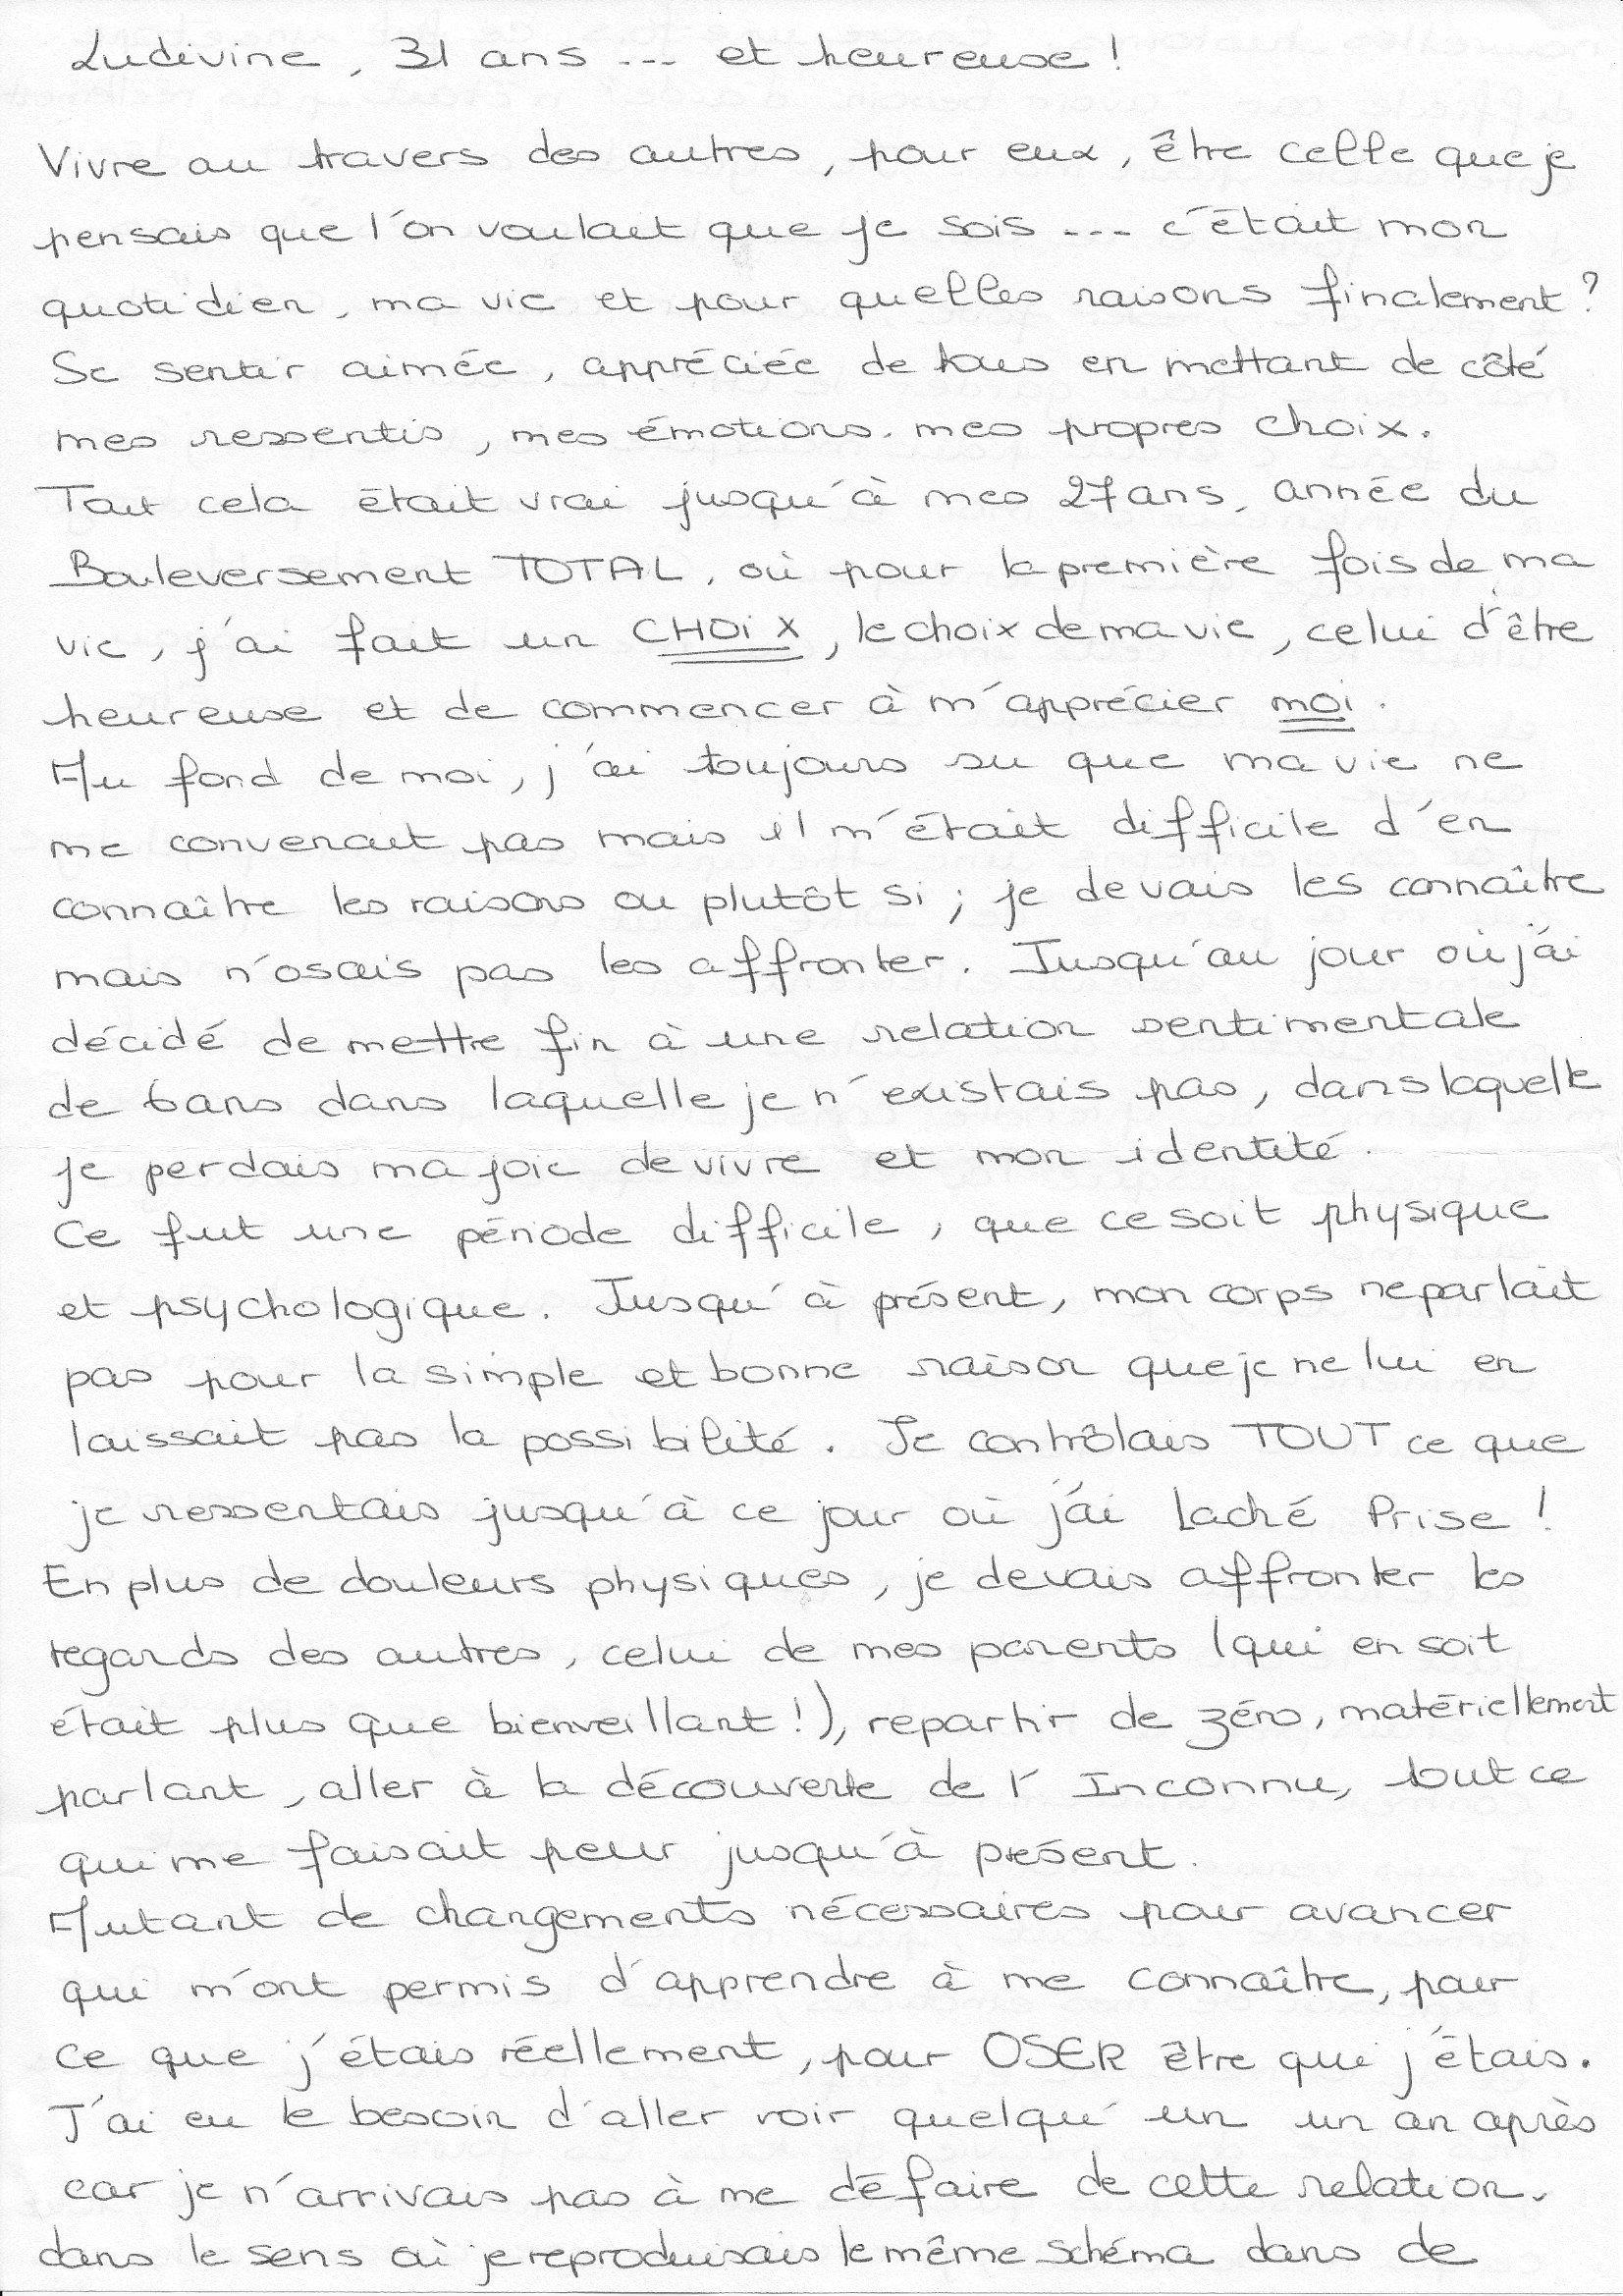 Ludivine, 31 ans --- et heureuse !
Vivre au travers des autres, pour eux, être celle que je
pensais que l'on voulait que je sois --- c'était mon
quotidien, ma vie et pour quelles raisons finalement ?
Se sentir aimée, appréciée de tous en mettant de côté
mes ressentis, mes émotions. mes propres choix.
Tout cela était vrai jusqu'à mes 27 ans, année du
Bouleversement TOTAL, où pour la première fois de ma
vie, j'ai fait un CHOIX, le choix de ma vie, celui d'être
heureuse et de commencer à m'apprécier moi.
Au fond de moi, j'ai toujours su que ma vie ne
me convenait pas mais il m'était difficile d'en
connaître les raisons ou plutôt si ; je devais les connaître
mais n'osais pas les affronter. Jusqu'au jour où j'ai
décidé de mettre fin à une relation sentimentale
de 6 ans dans laquelle je n'existais pas, dans laquelle
je perdais ma joie de vivre et mon identité.
Ce fut une période difficile, que ce soit physique
et psychologique. Jusqu'à présent, mon corps ne parlait
pas pour la simple et bonne raison que je ne lui en
laissait pas la possibilité. Je contrôlais TOUT ce que
je ressentais jusqu'à ce jour où j'ai Laché Prise !
En plus de douleurs physiques, je devais affronter les
regards des autres, celui de mes parents (qui en soit
était plus que bienveillant !), repartir de zéro, matériellement
parlant, aller à la découverte de l'Inconnu, tout ce
qui me faisait peur jusqu'à présent.
Autant de changements nécessaires pour avancer
qui m'ont permis d'apprendre à me connaître, pour
ce que j'étais réellement, pour OSER être qui j'étais.
J'ai eu le besoin d'aller voir quelqu'un un an après
car je n'arrivais pas à me défaire de cette relation.
dans le sens où je reproduisais le même schéma dans de